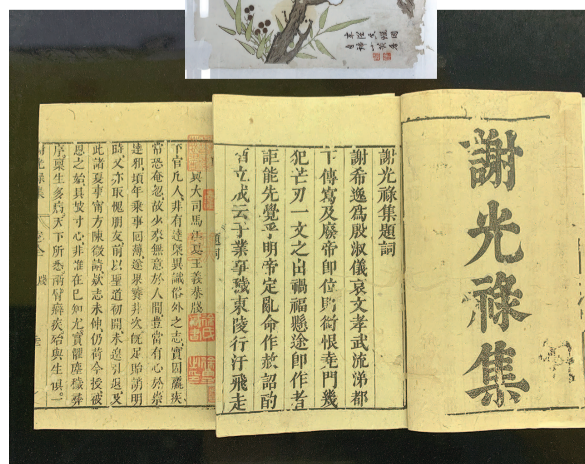 謝光祿集
謝光祿集題詞
謝希逸爲殷淑儀哀文孝武流涕都
下傳寫及廢帝即位則銜恨堯門幾
犯芒刃一文之出禍福懸途即作者
詎能先覺乎明帝定亂命作赦詔酌
酒立成云子業事穢東陵行汙飛走
題詞
與大司馬江夏王義恭牋
下官凡人非有達槩異識俗外之志實因羸疾
常恐奄忽故少來無意於人間豈當有心於崇
達邪頃年乘事回薄遂果饕非次既足貽誚明
時又亦取愧朋友前以聖道初開未遑引退及
此諸夏事寧方陳微請款志未伸仍荷今授被
恩之始具披寸心非惟在己知尤實懼塵穢彝
序稟生多病天下所悉兩脅癖疾殆與生俱一